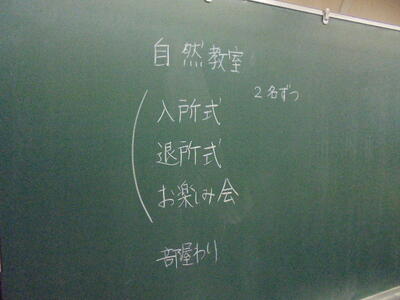 自然教室
2名ずつ
入所式
退所式
お楽しみ会
部屋わり